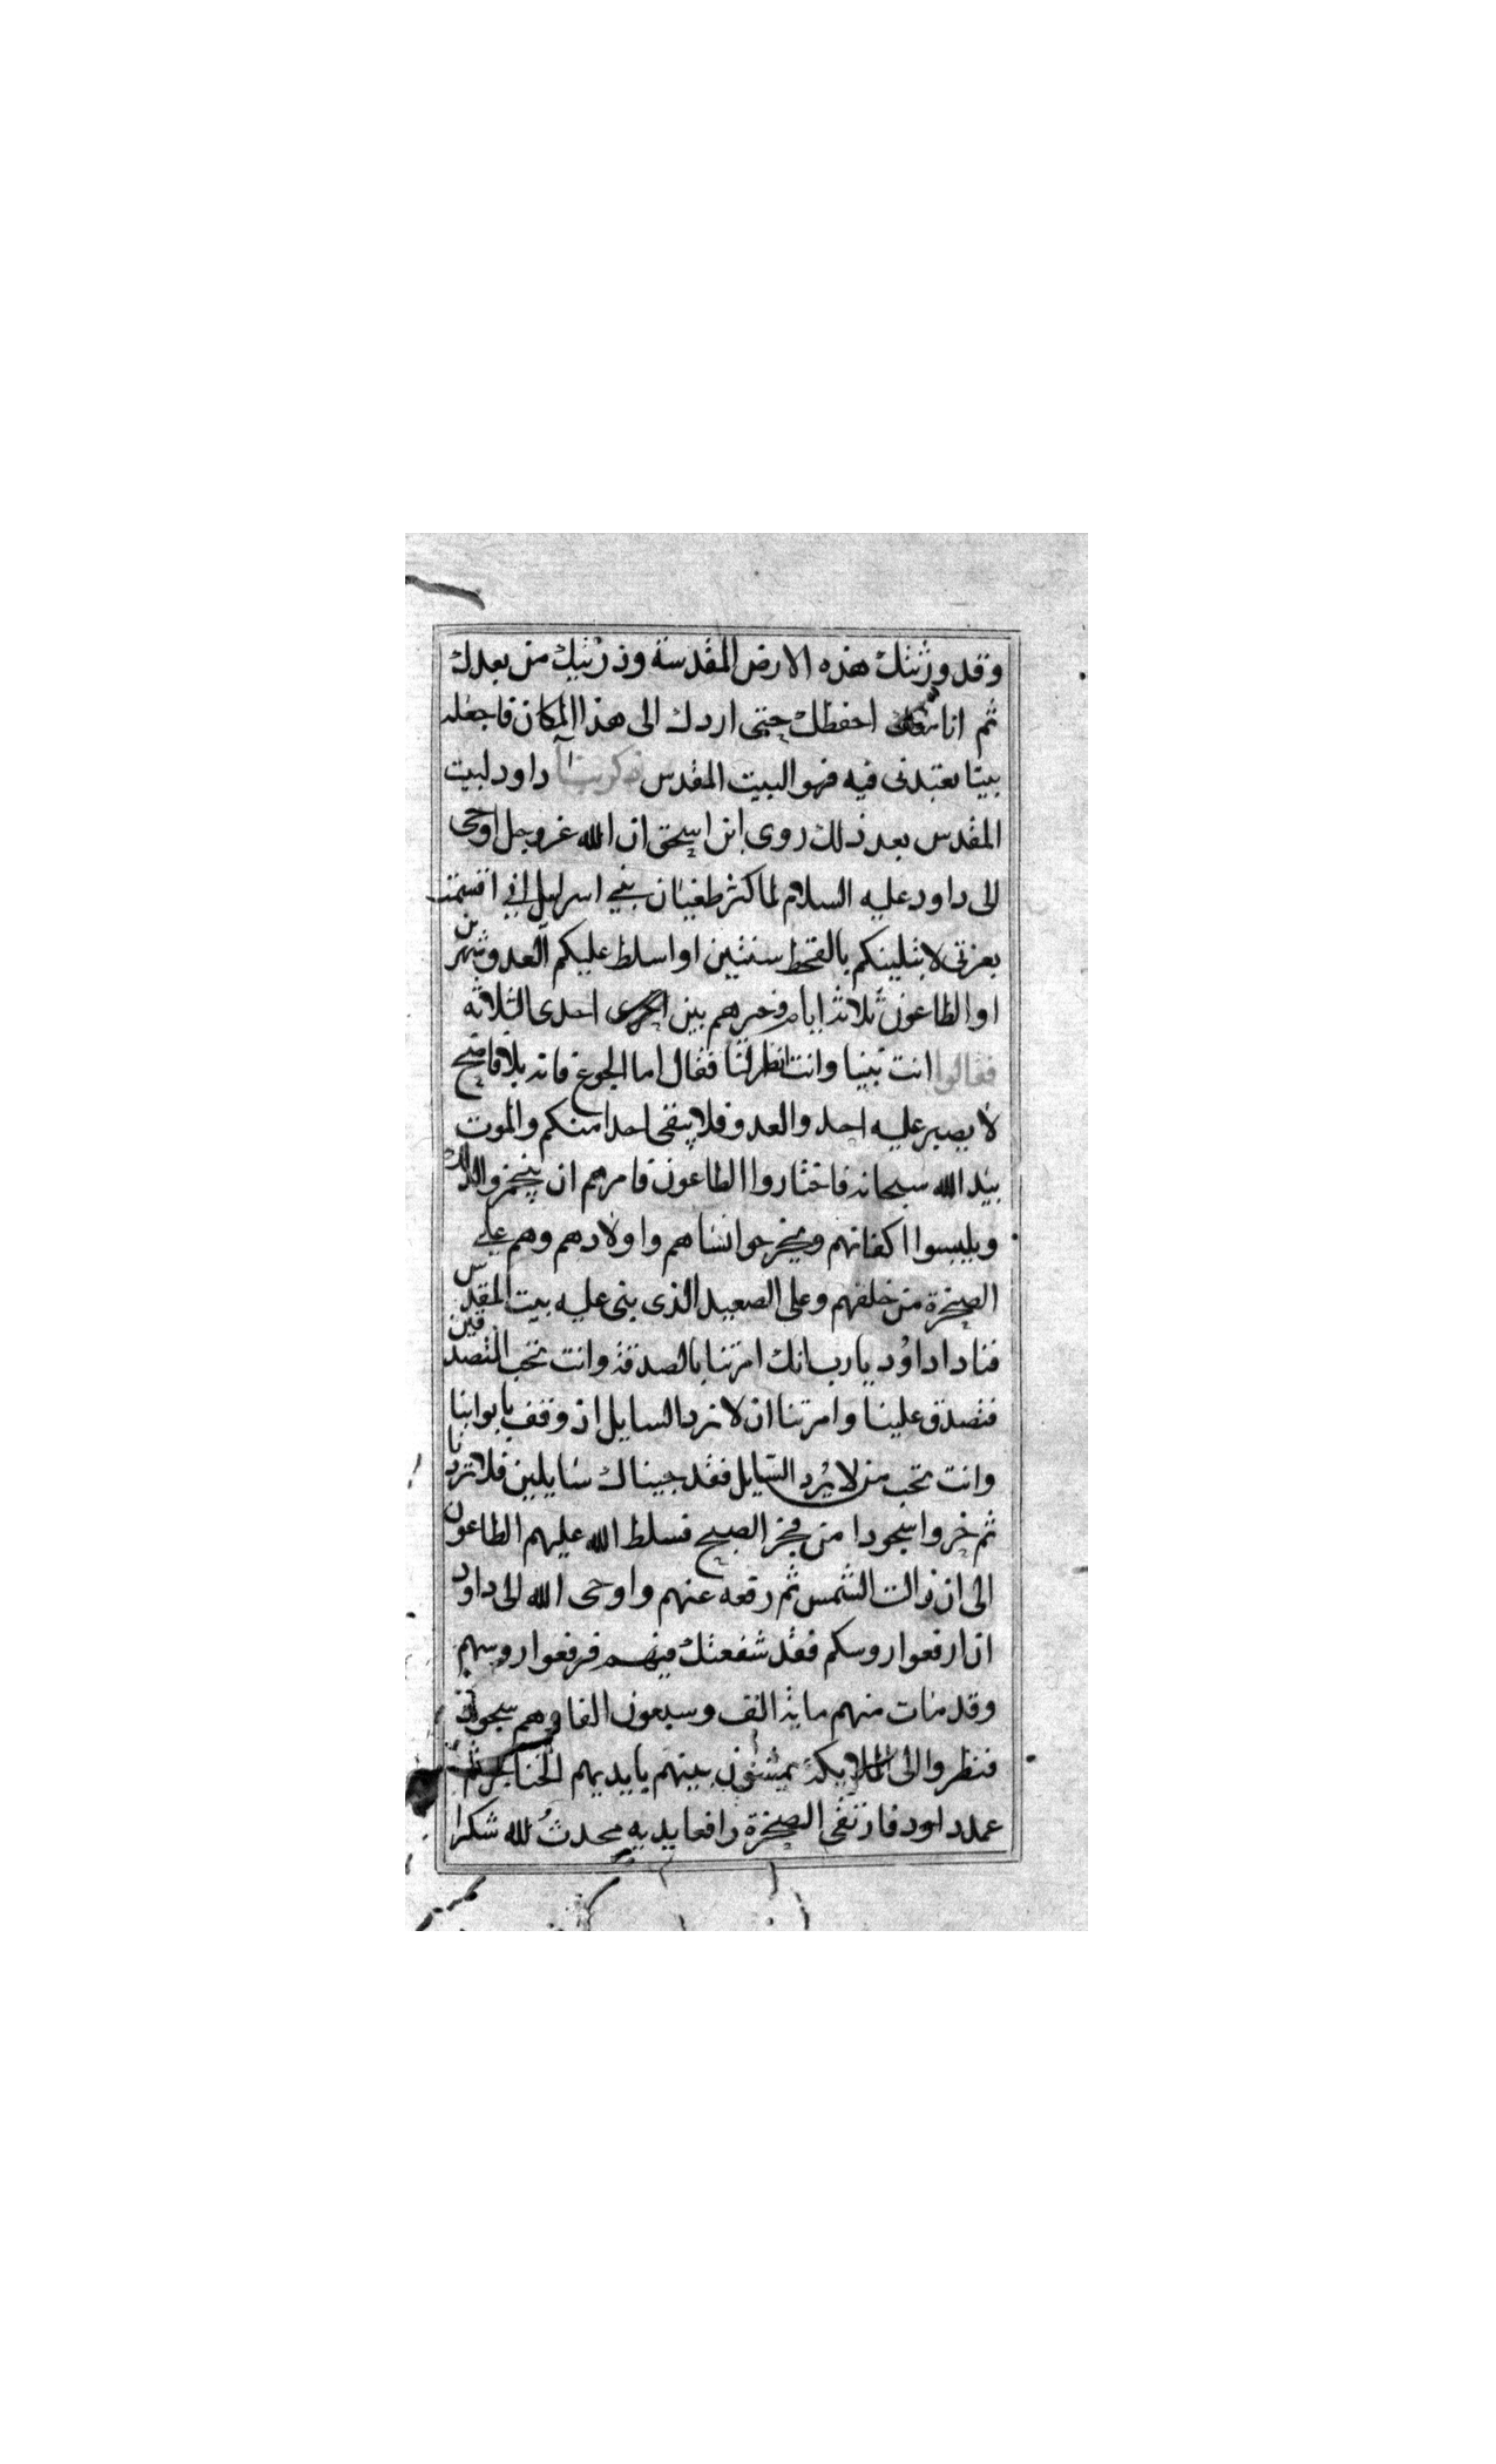 وقد ورثتك هذه الارض المقدسة وذريتك من بعدك
ثم انا معك احفظك حتى اردك الى هذا المكان فاجعله
بيتا تعبدنى فيه فهو البيت المقدس ذكر بنآ داود لبيت
المقدس بعد ذلك روى ابن اسحق ان الله عز وجل اوحى
الى داود عليه السلام لما كثر طغيان بني اسرايل اني اقسمت
بعزتى لابتلينكم بالقحط سنتين او اسلط عليكم العدو شهرين
او الطاعون ثلاثة ايام فخيرهم بين احدى الثلاثه
فقالوا انت نبينا وانت انظر لنا فقال اما الجوع فانه بلا فاضح
لا يصبر عليه احد والعدو فلا يبقى احدا منكم والموت
بيد الله سبحانه فاختاروا الطاعون فامرهم ان يتجهزوا لذلك
ويلبسوا اكفانهم ويخرجوا نساهم واولادهم وهم على
الصخرة من خلفهم وعلى الصعيد الذى بنى عليه بيت المقدس
فنادا داود يا رب انك امرتنا بالصدقة وانت تحب المتصدقين
فتصدق علينا وامرتنا ان لا نرد السايل اذ وقف بابوابنا
وانت تحب من لا يرد السايل فقد جيناك سايلين فلا تردنا
ثم خروا سجودا من فجر الصبح فسلط الله عليهم الطاعون
الى ان زالت الشمس ثم رفعه عنهم واوحى الله الى داود
ان ارفعوا روسكم فقد شفعتك فيهم فرفعوا روسهم
وقد مات منهم ماية الف وسبعون الفا وهم سجود
فنظروا الى الملايكة يمشون بينهم بايديهم الخناجر ثم
عمد داود فارتقى الصخرة رافعا يديه محدث لله شكرا